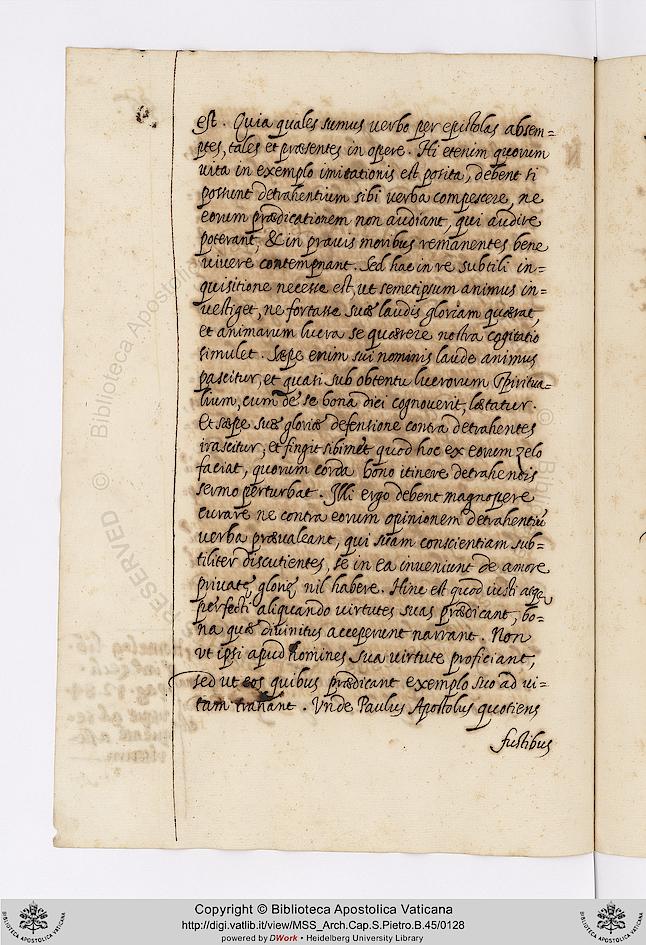 est. Quia quales sumus verbo per epistolas absen=
ptes, tales et præsentes in opere. Hi etenim quorum
vita in exemplo imitationis est posita, debent si
possunt detrahentium sibi verba compescere, ne
eorum prædicationem non audiant, qui audire
poterant, & in pravis moribus remanentes bene
vivere contempnant. Sed hac in re subtili in=
quisitione necesse est, ut semetipsum animus in=
vestiget, ne fortasse suæ laudis gloriam quærat,
et animarum lucra se quærere nostra cogitatio
simulet. Sæpe enim sui nominis laude animus
pascitur, et quasi sub obtentu lucrorum spiritua=
lium, cum de se bona dici cognoverit, lætatur.
Et sæpe suæ gloriæ defensione contra detrahentes
irascitur, et fingit sibimet quod hoc ex eorum zelo
faciat, quorum corda bono itinere detrahendis
sermo perturbat. Illi ergo debent magnopere
curare ne contra eorum opinionem detrahentiũ
verba prævaleant, qui suam conscientiam sub=
tiliter discutientes, se in ea inveniunt de amore
privatę glorię nil habere. Hinc est quod iusti atque
perfecti aliquando virtutes suas prædicant, bo=
na quæ divinitus acceperunt narrant. Non
ut ipsi apud homines sua virtute proficiant,
sed ut eos quibus prædicant exemplo suo ad vi=
tam trahant. Unde Paulus Apostolus quotiens
fustibus
RESERVED © Biblioteca Apostolica
Copyright © Biblioteca Apostolica Vaticana
http://digi.vatlib.it/view/MSS_Arch.Cap.S.Pietro.B.45/0128
powered by DWork • Heidelberg University Library